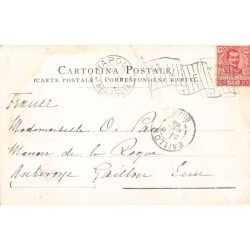 NAPOLI
CARTOLINA POSTALE
(CARTE POSTALE - CORRESPONDENZ KARTE)
France
Mademoiselle O. Pau
Manoir de la Roque
Aubevoye Gaillon Eure